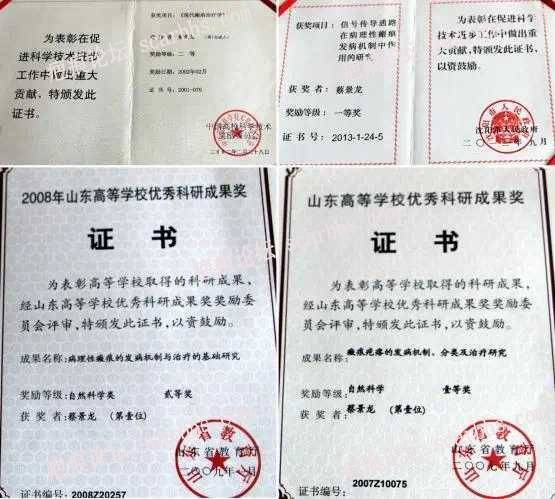 为表彰在促
进科学技术进步
工作中做出重大
贡献，特颁发此
证书。
获奖项目：《现代瘢痕治疗学》
奖励等级：二 等
奖励日期：2002年02月
证 书 号：2001-075
获奖项目：信号传导通路
在病理性瘢痕
发病机制中作
用的研究
获 奖 者：蔡景龙
奖励等级：一等奖
证书号：2013-1-24-5
为表彰在促进科学
技术进步工作中做出重
大贡献，特颁发此证书，
以资鼓励。
沈阳市人民政府
2008年山东高等学校优秀科研成果奖
证 书
为表彰高等学校取得的科研成果，
经山东高等学校优秀科研成果奖奖励委
员会评审，特颁发此证书，以资鼓励。
成果名称：病理性瘢痕的发病机制与治疗的基础研究
奖励等级：自然科学类 贰等奖
获 奖 者：蔡景龙（第壹位）
山东省教育厅
二〇〇九年 月
证书编号：2008Z20257
山东高等学校优秀科研成果奖
证 书
为表彰高等学校取得的科研成果，
经山东高等学校优秀科研成果奖奖励委
员会评审，特颁发此证书，以资鼓励。
成果名称：瘢痕疙瘩的发病机制、分类及治疗研究
奖励等级：自然科学 壹等奖
获 奖 者：蔡景龙（第壹位）
山东省教育厅
证书编号：2007Z10075